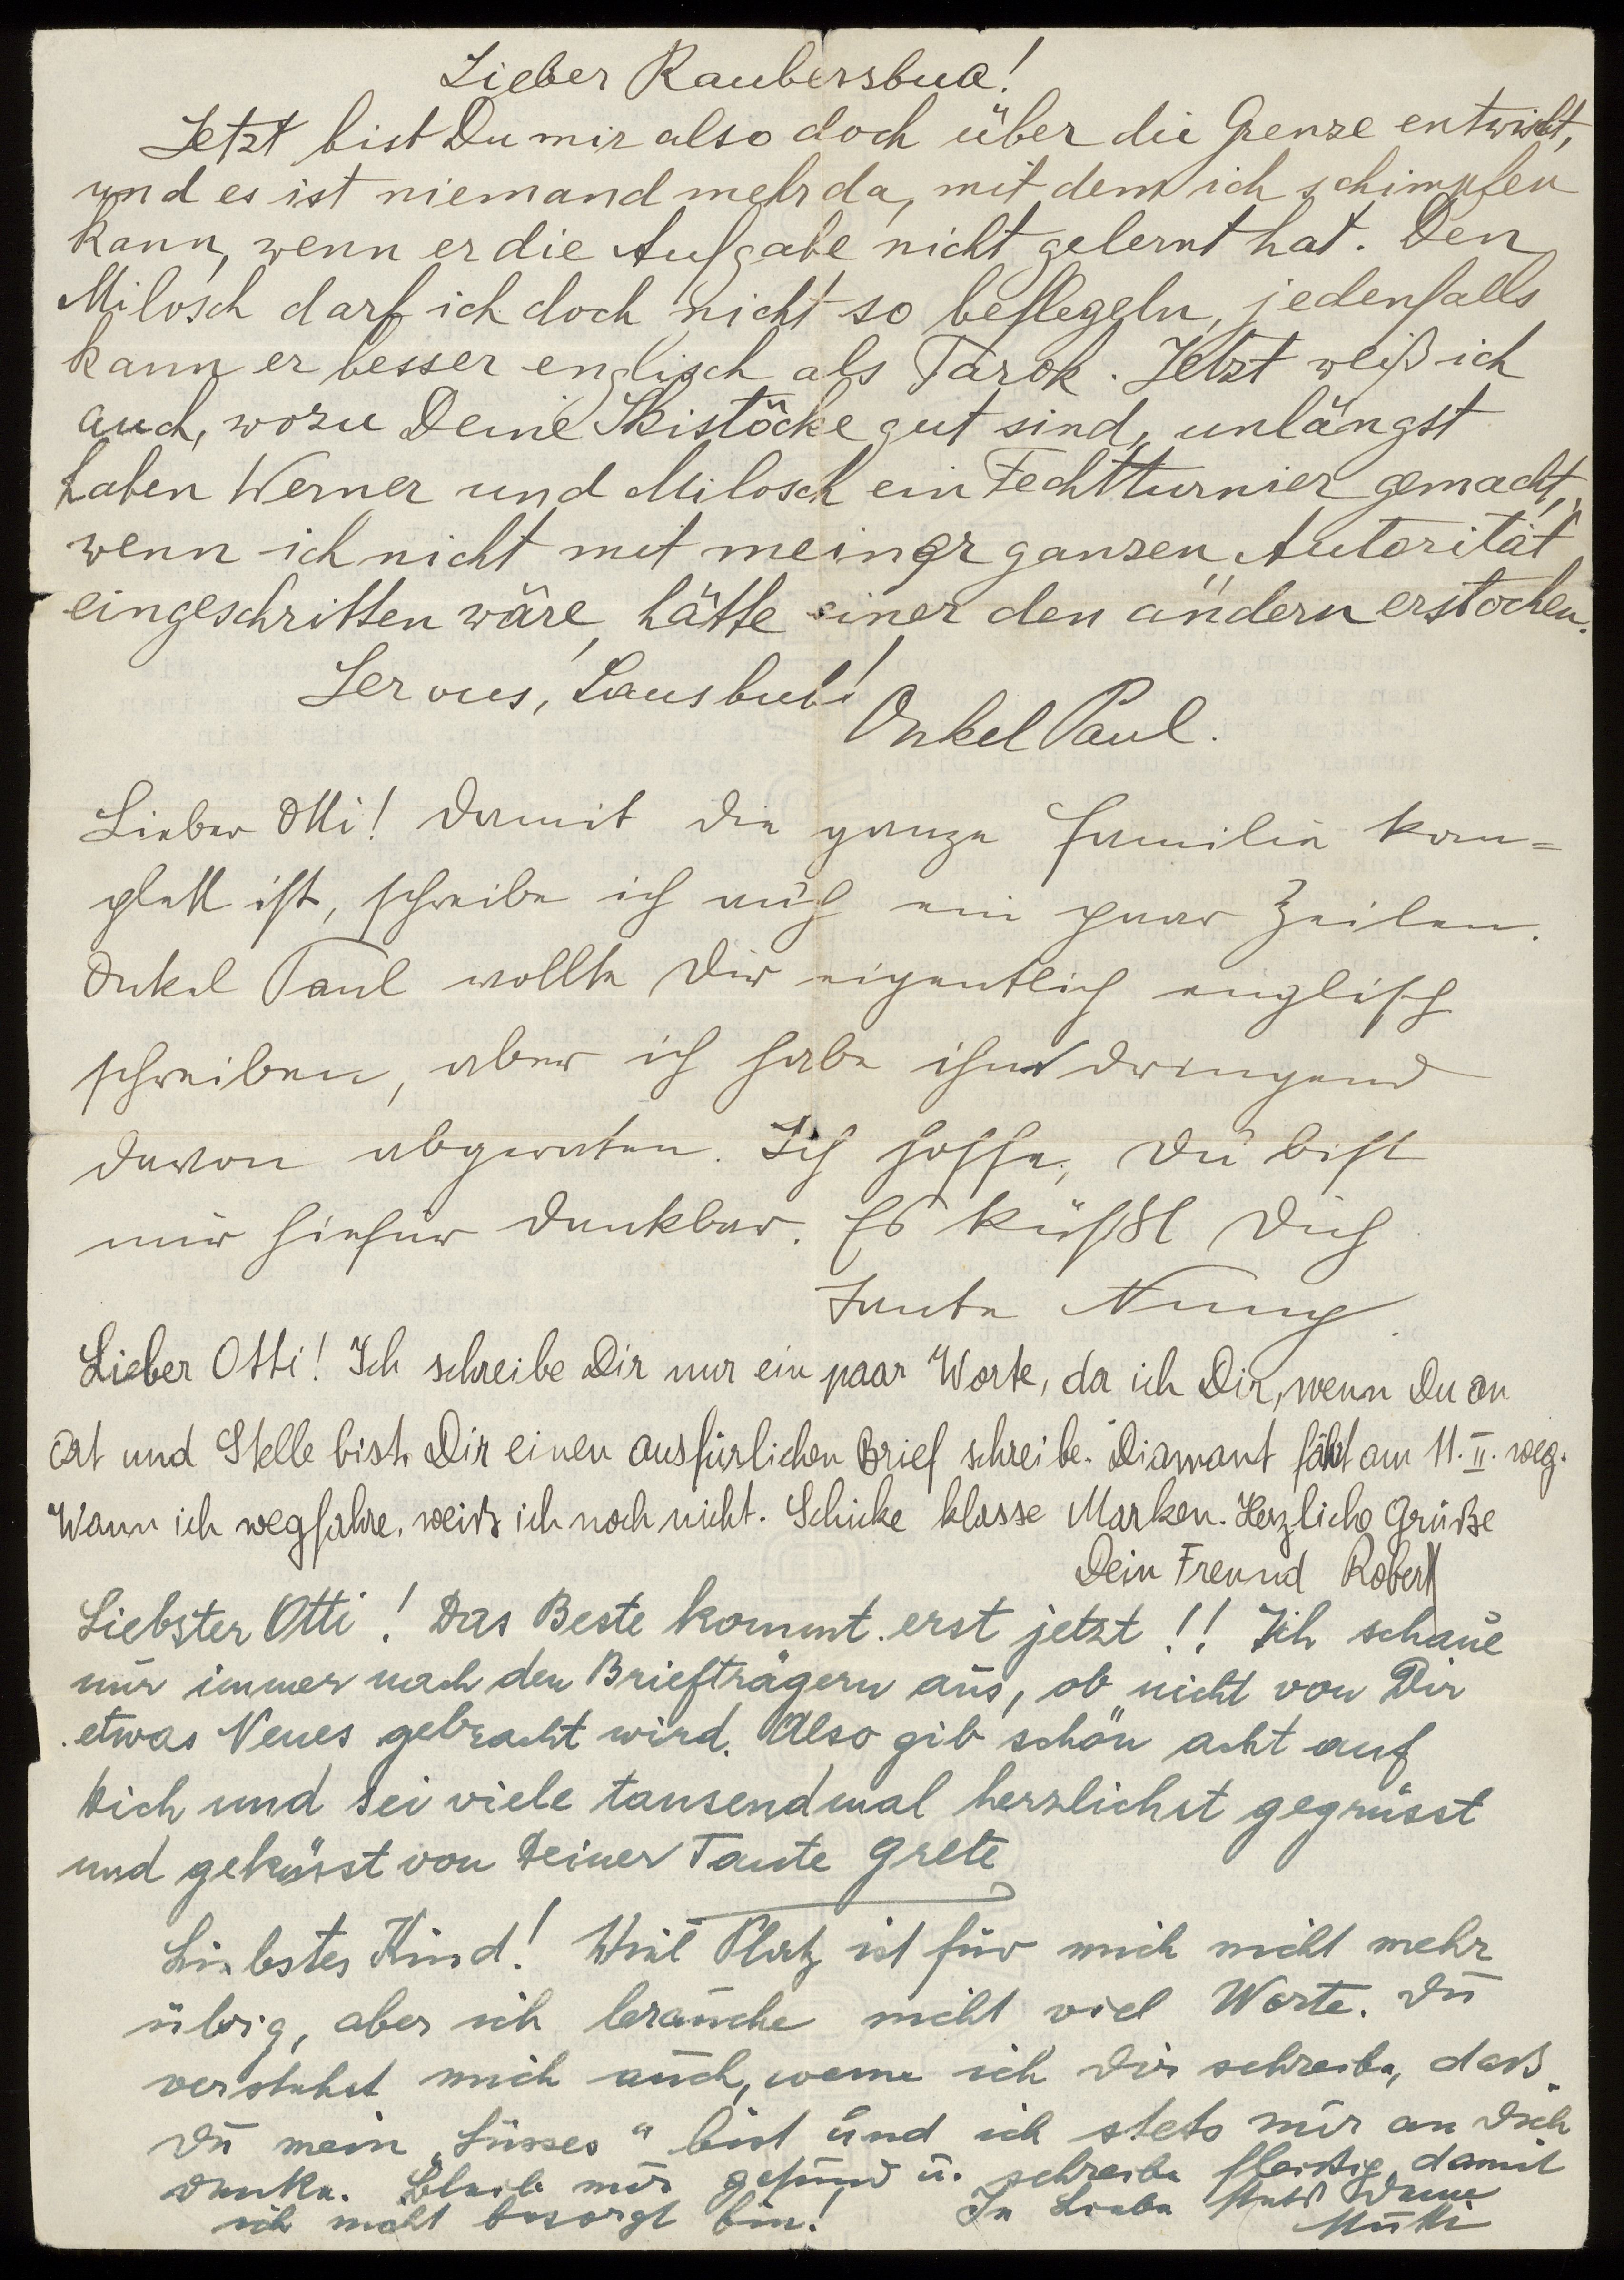 Lieber Raubersbua!
Jetzt bist Du mir also doch über die Grenze entwischt,
und es ist niemand mehr da, mit dem ich schimpfen
kann, wenn er die Aufgabe nicht gelernt hat. Den
Milosch darf ich doch nicht so beflegeln, jedenfalls
kann er besser englisch als Tarok. Jetzt weiß ich
auch, wozu Deine Skistöcke gut sind, unlängst
haben Werner und Milosch ein Fechtturnier gemacht,
wenn ich nicht mit meiner ganzen Autorität
eingeschritten wäre, hätte einer den andern erstochen.
Servus, Lausbub!
Onkel Paul.
Lieber Otti! Damit die ganze Familie kom=
plett ist, schreibe ich auch ein paar Zeilen.
Onkel Paul wollte Dir eigentlich englisch
schreiben, aber ich habe ihm dringend
davon abgeraten. Ich hoffe, Du bist
mir hiefür dankbar. Es küßt Dich
Tante Nuny.
Lieber Otti! Ich schreibe Dir nur ein paar Worte, da ich Dir, wenn Du an
Ort und Stelle bist, Dir einen ausfürlichen Brief schreibe. Diamant fährt am 11. II. weg.
Wann ich wegfahre, weiß ich noch nicht. Schicke klasse Marken. Herzliche Grüße
Dein Freund Robert
Liebster Otti! Das Beste kommt erst jetzt!! Ich schaue
nur immer nach den Briefträgern aus, ob nicht von Dir
etwas Neues gebracht wird. Also gib schön acht auf
Dich und sei viele tausendmal herzlichst gegrüsst
und geküsst von Deiner Tante Grete
Liebstes Kind! Viel Platz ist für mich nicht mehr
übrig, aber ich brauche nicht viel Worte. Du
verstehst mich auch, wenn ich Dir schreibe, daß
Du mein „Süsses" bist und ich stets nur an Dich
denke. Bleib mir gesund u. schreibe fleißig, damit
ich nicht besorgt bin! In Liebe stets Deine
Mutti